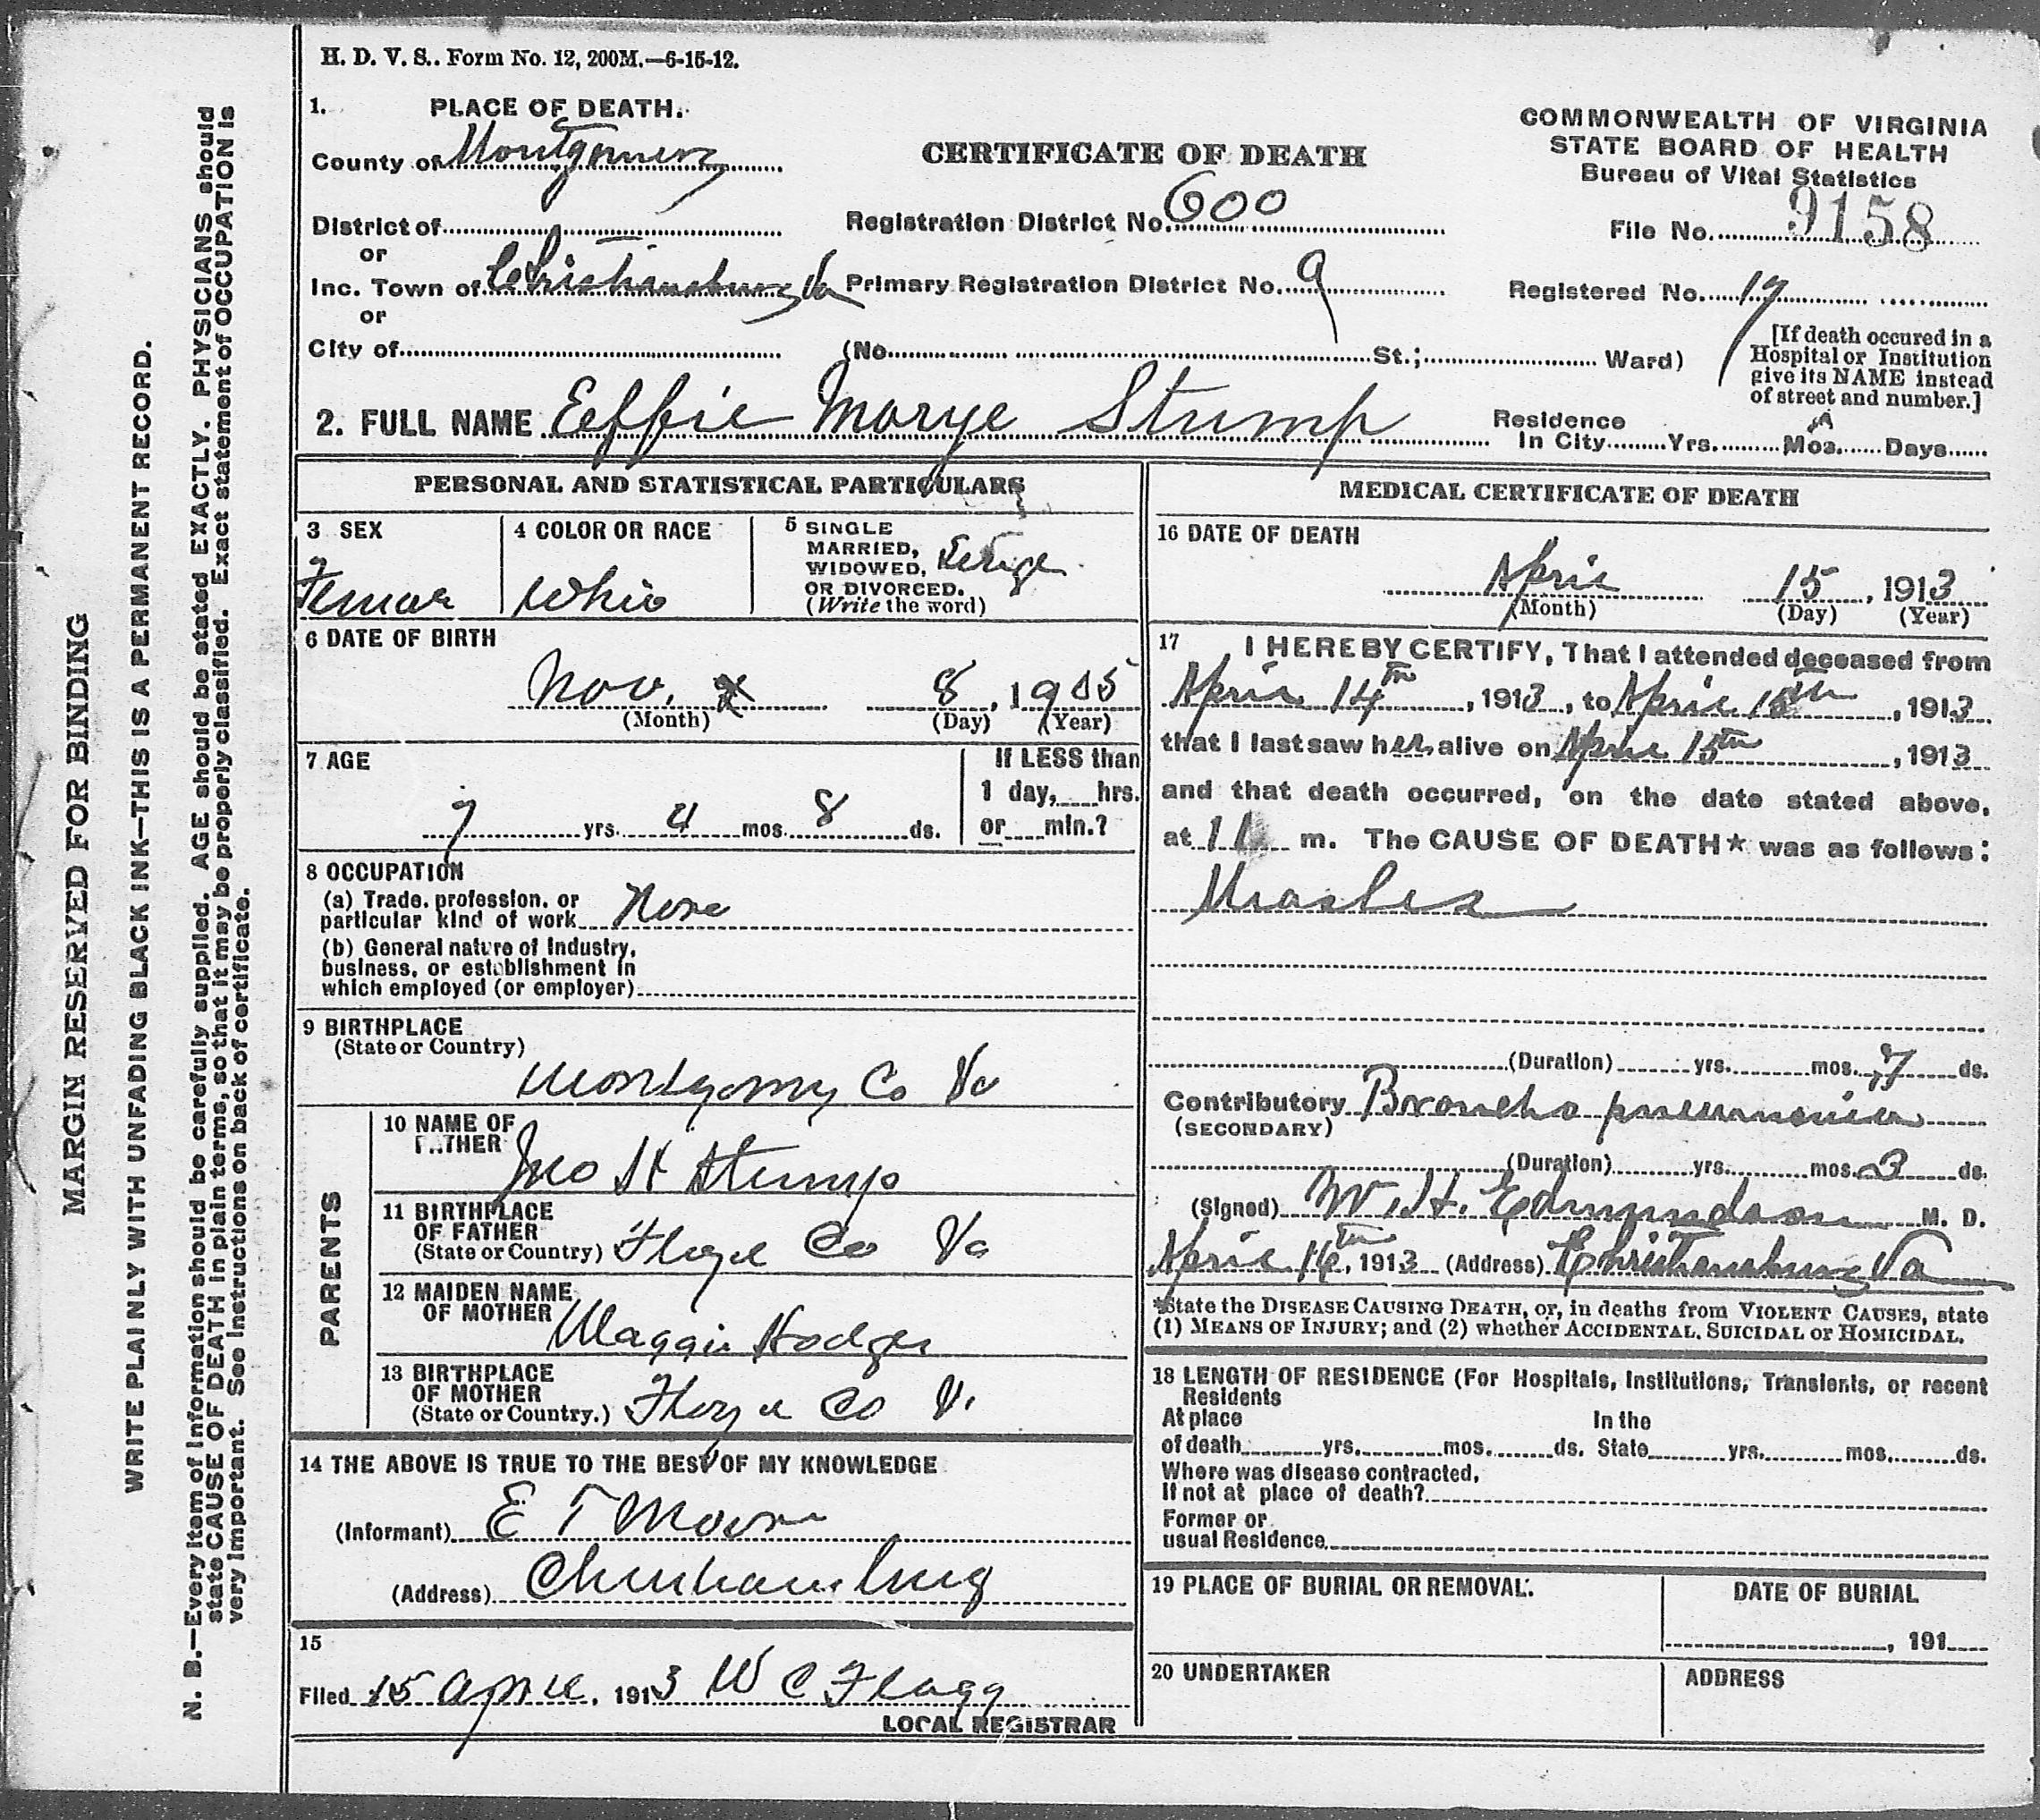 H. D. V. S.. Form No. 12, 200M.—6-15-12.
1. PLACE OF DEATH.
County of Montgomery
District of
or
Inc. Town of Christiansburg Va
or
City of
CERTIFICATE OF DEATH
Registration District No. 600
Primary Registration District No. 9
(No. St.; Ward)
COMMONWEALTH OF VIRGINIA
STATE BOARD OF HEALTH
Bureau of Vital Statistics
File No. 9158
Registered No. 17
[If death occured in a
Hospital or Institution
give its NAME instead
of street and number.]
2. FULL NAME Eeffie Morye Stump
Residence
In City Yrs. Mos. Days
PERSONAL AND STATISTICAL PARTICULARS
3 SEX
Female
4 COLOR OR RACE
White
5 SINGLE
MARRIED,
WIDOWED,
OR DIVORCED.
(Write the word)
Single
6 DATE OF BIRTH
Nov. 8, 1905
(Month) (Day) (Year)
7 AGE
7 yrs. 4 mos. 8 ds.
If LESS than
1 day, hrs.
or min.?
8 OCCUPATION
(a) Trade, profession, or
particular kind of work None
(b) General nature of Industry,
business, or establishment in
which employed (or employer)
9 BIRTHPLACE
(State or Country)
Montgomery Co Va
PARENTS
10 NAME OF
FATHER
Jno H Stump
11 BIRTHPLACE
OF FATHER
(State or Country) Floyd Co Va
12 MAIDEN NAME
OF MOTHER
Maggie Hodges
13 BIRTHPLACE
OF MOTHER
(State or Country.) Floyd Co V.
14 THE ABOVE IS TRUE TO THE BEST OF MY KNOWLEDGE
(Informant) E T Moore
(Address) Christiansburg
15
Filed 15 April, 1913 W C Flagg
LOCAL REGISTRAR
MEDICAL CERTIFICATE OF DEATH
16 DATE OF DEATH
April 15, 1913
(Month) (Day) (Year)
17 I HEREBY CERTIFY, That I attended deceased from
April 14th, 1913, to April 15th, 1913
that I last saw her alive on April 15th, 1913
and that death occurred, on the date stated above,
at 11 m. The CAUSE OF DEATH* was as follows:
Measles
(Duration) yrs. mos. 7 ds.
Contributory Broncho pneumonia
(SECONDARY)
(Duration) yrs. mos. 3 ds.
(Signed) W. H. Edmundson M. D.
April 16th, 1913 (Address) Christiansburg Va
*State the DISEASE CAUSING DEATH, or, in deaths from VIOLENT CAUSES, state
(1) MEANS OF INJURY; and (2) whether ACCIDENTAL, SUICIDAL or HOMICIDAL.
18 LENGTH OF RESIDENCE (For Hospitals, Institutions, Transients, or recent
Residents
At place In the
of death yrs. mos. ds. State yrs. mos. ds.
Where was disease contracted,
If not at place of death?
Former or
usual Residence
19 PLACE OF BURIAL OR REMOVAL.
DATE OF BURIAL
, 191
20 UNDERTAKER
ADDRESS
MARGIN RESERVED FOR BINDING
WRITE PLAINLY WITH UNFADING BLACK INK—THIS IS A PERMANENT RECORD.
N. B.—Every item of information should be carefully supplied. AGE should be stated EXACTLY. PHYSICIANS should
state CAUSE OF DEATH in plain terms, so that it may be properly classified. Exact statement of OCCUPATION is
very important. See instructions on back of certificate.